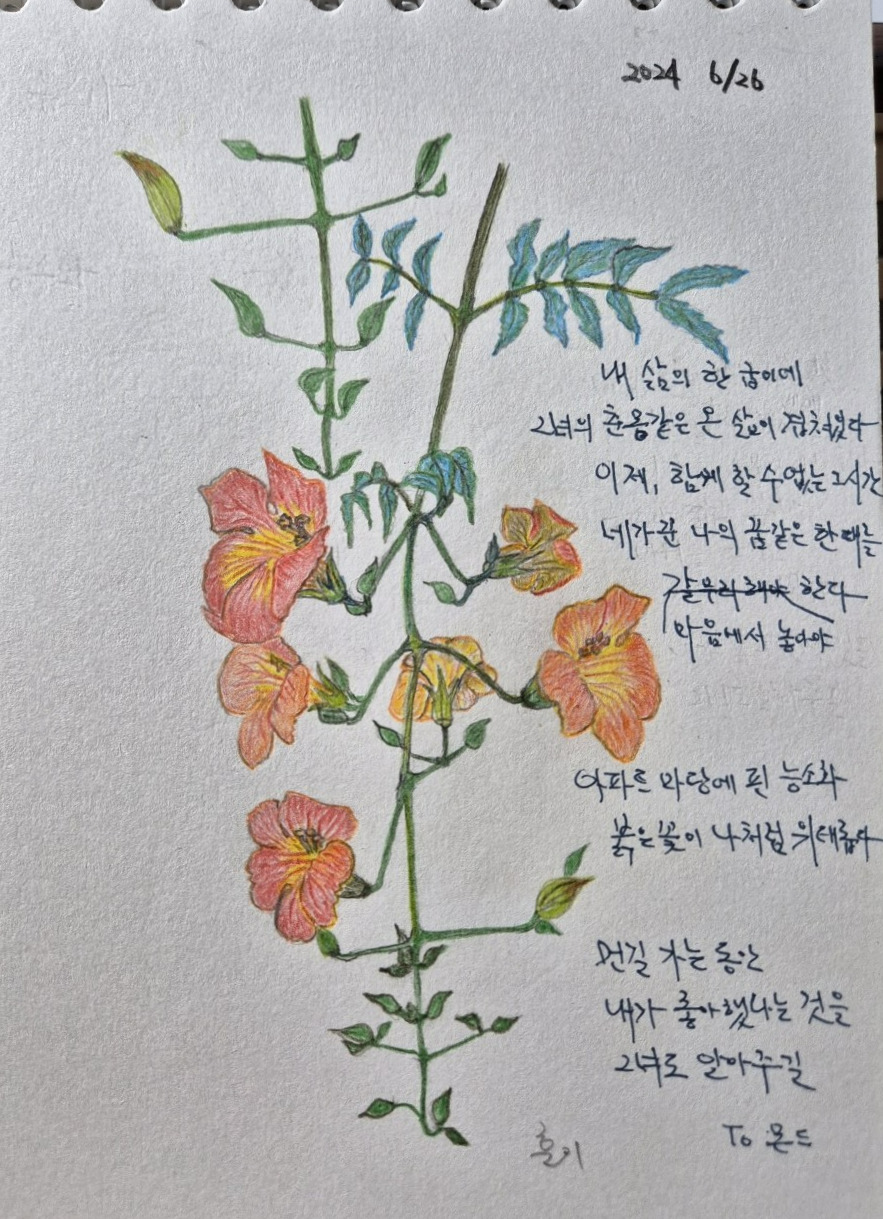 2024 6/26
내 삶의 한 굽이에
그녀의 춘몽같은 온 삶이 겹쳐졌다
이제, 함께 할 수 없는 그 시간
네가 준 나의 꿈같은 한때를
갈무리 해야 한다
마음에서 놓아야
아파트 마당에 핀 능소화
붉은 꽃이 나처럼 위태롭다
먼길 가는 동안
내가 좋아했다는 것을
그녀도 알아주길
To 몬드